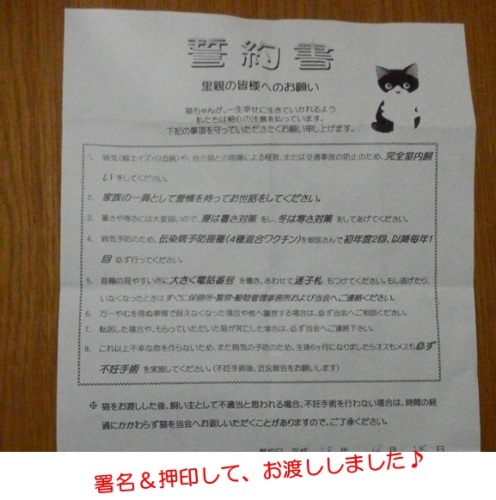 誓約書
里親の皆様へのお願い
猫ちゃんが、一生幸せに生きていかれるよう
私たちは細心の注意を払っています。
下記の事項を守っていただきたくお願い申し上げます。
1. 病気(猫エイズ・白血病)や、他の猫との喧嘩による怪我、または交通事故の防止のため、完全室内飼
いをしてください。
2. 家族の一員として愛情を持ってお世話をしてください。
3. 暑さや寒さには大変弱いので、夏は暑さ対策をし、冬は寒さ対策をしてあげてください。
4. 病気予防のため、伝染病予防接種(4種混合ワクチン)を獣医さんで初年度2回、以降毎年1
回必ず行ってください。
5. 首輪の見やすい所に大きく電話番号を書き、あわせて迷子札もつけてください。もし逃げたり、
いなくなったときはすぐに保健所・警察・動物管理事務所および当会へご連絡ください。
6. 万一やむを得ぬ事情で飼えなくなった場合や他へ譲渡する場合は、必ず当会へご相談ください。
7. 転居した場合や、もらっていただいた猫が死亡した場合は、必ず当会へご連絡下さい。
8. これ以上不幸な命を作らないため、また病気の予防のため、生後6ヶ月になりましたらオスもメスも必ず
不妊手術を実施してください。(不妊手術後、近況報告をお願いします)
※ 猫をお渡しした後、飼い主として不適当と思われる場合、不妊手術を行わない場合は、時間の経
過にかかわらず猫を当会へお返しいただくことがありますので、ご了承ください。
署名&押印して、お渡ししました♪